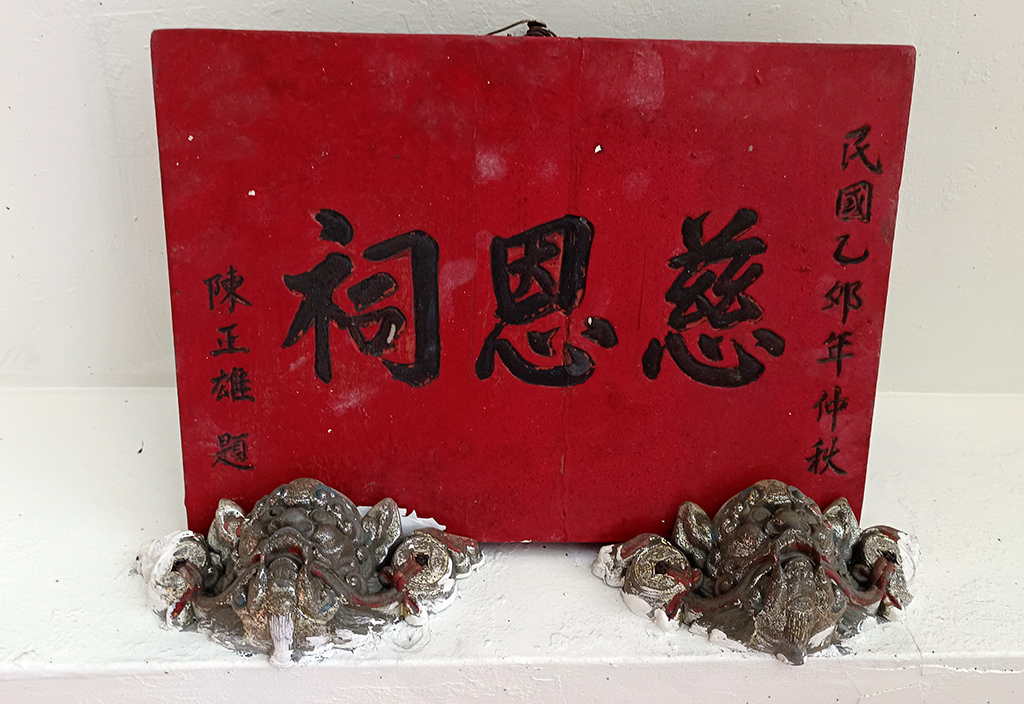 民國乙卯年仲秋
慈恩祠
陳正雄題